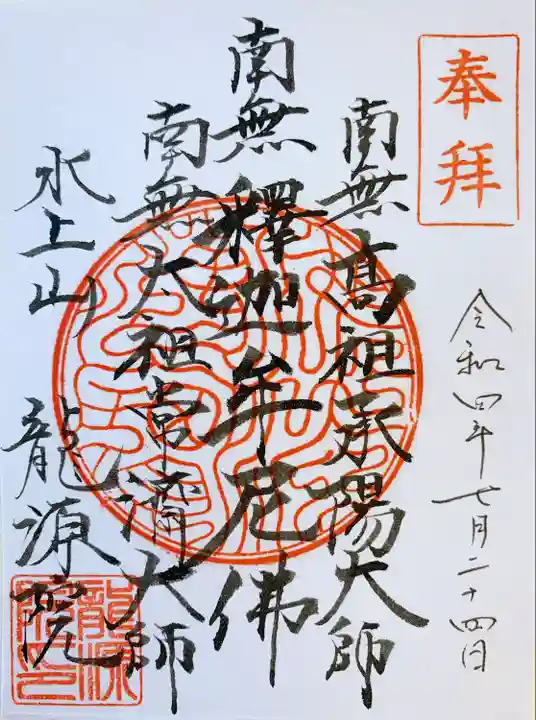 奉拝
令和四年七月二十四日
南無高祖承陽大師
南無釋迦牟尼佛
南無太祖常濟大師
水上山 龍源院
龍源院印